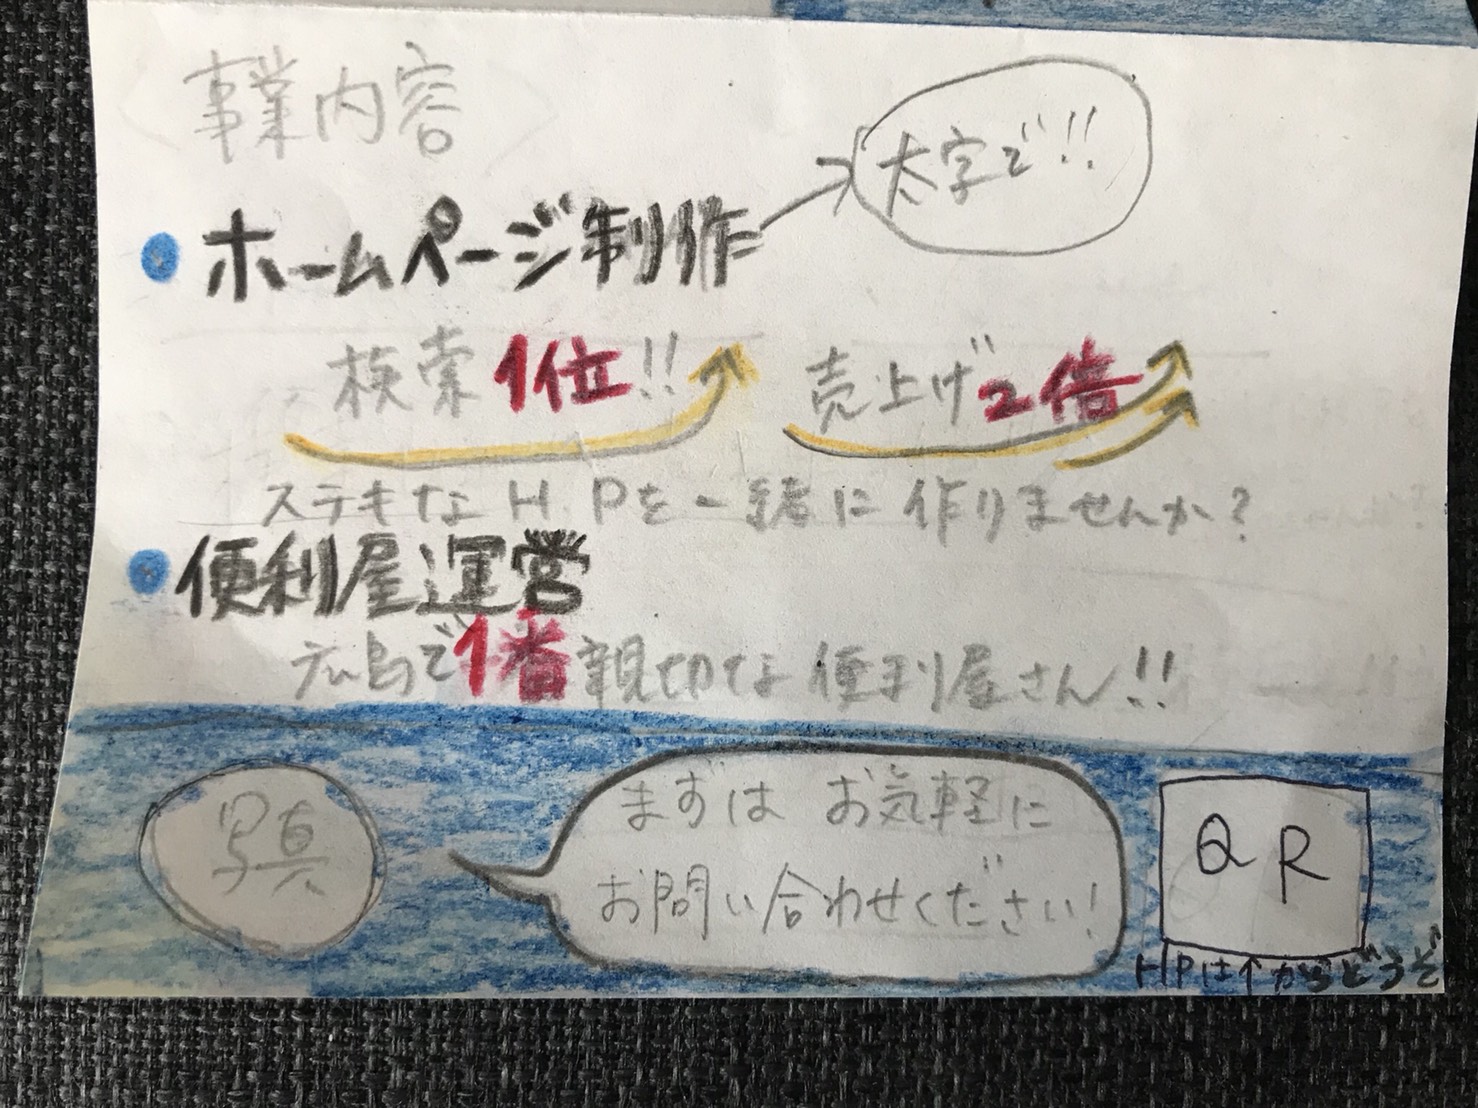 〈事業内容〉
太字で!!
ホームページ制作
検索1位!! 売上げ2倍
ステキなH.Pを一緒に作りませんか?
便利屋運営
広島で1番親切な便利屋さん!!
写真
まずはお気軽に
お問い合わせください!
QR
HPは↑からどうぞ